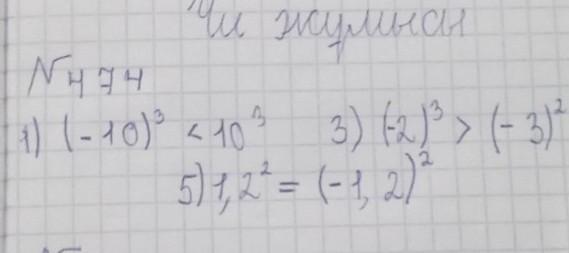 Үй жұмысы
N474
1) (-10)³ < 10³ 3) (-2)³ > (-3)²
5) 1,2² = (-1,2)²